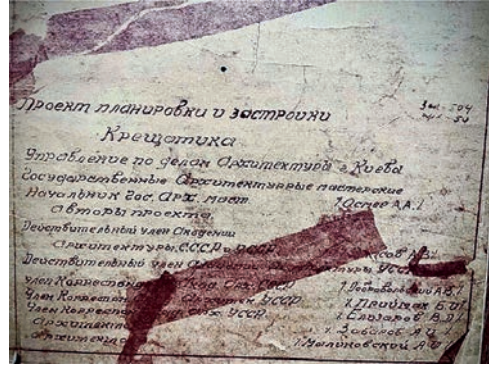 Проект планировки и застройки
Крещатика
Управление по делам Архитектуры г. Киева
Государственные Архитектурные мастерские
Начальник Гос. Арх. маст. /Оснев А.А./
Авторы проекта
Действительный член Академии
Архитектуры С.С.С.Р. и УССР
Действительный член Архитектуры УССР
член Корреспондент Акад. Арх. СССР /Добровольский А.В./
Член Корреспондент УССР /Приймак Б.И./
Член Корреспондент Акад. Арх. УССР /Елизаров В.Д./
Архитектор /Заваров А.И./
Архитектор /Малиновский А.И./